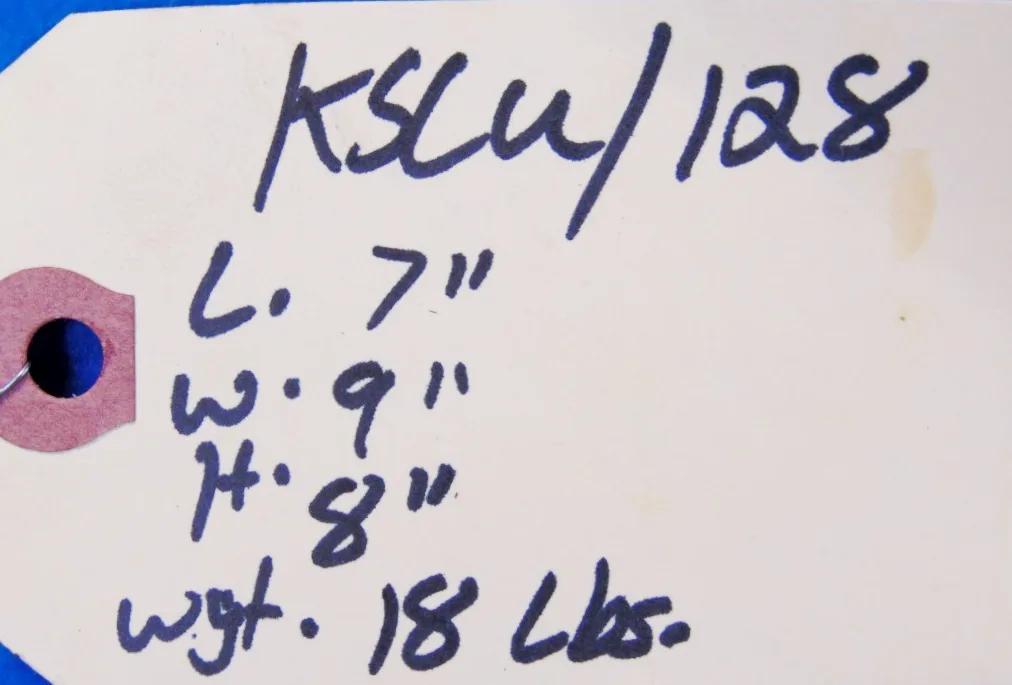 KSCU/128
L. 7"
W. 9"
H. 8"
wgt. 18 Lbs.